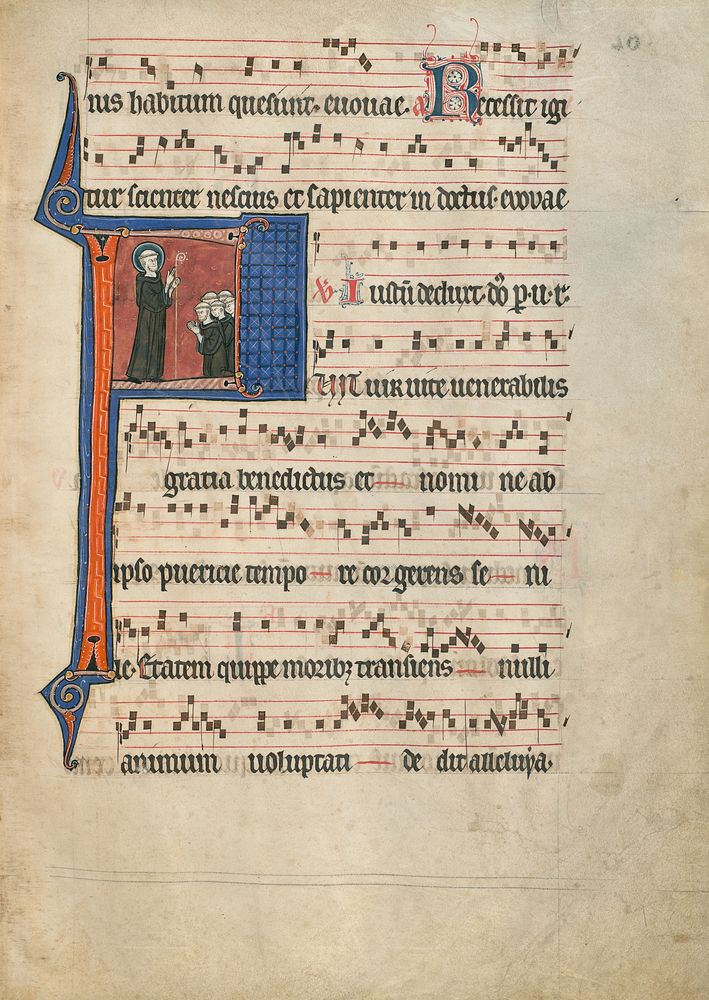 nus habitum quesiuit. euouae. a Recessit igi
tur scienter nescius et sapienter in doctus. evovae
℣ Iustū deduxit. dō p. u. r.
FUIT uir uite uenerabilis
gratia benedictus et nomi ne ab
ipso puericie tempo re cor gerens se ni
le. Etatem quippe moribꝫ transiens nulli
animum uoluptati de dit alleluya.